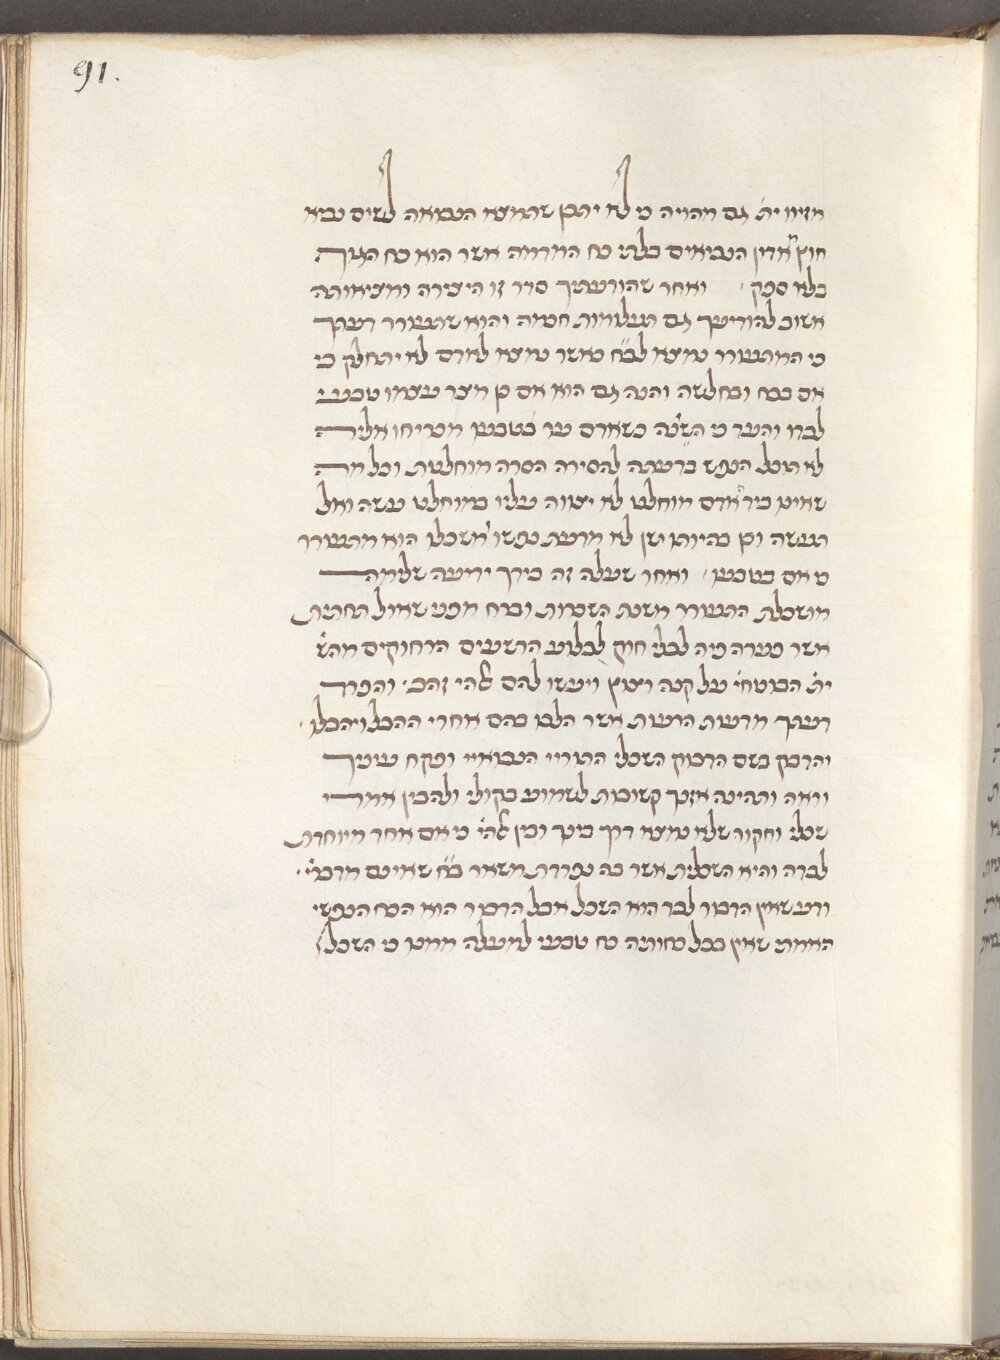 91.
מזיוו ית׳ גם מהויה כי לא יתכן שתמצא הנבואה לשום נביא
חוץ מאדון הנביאים בלתי כח המדמה אשר הוא כח הגוף
בלא ספק׳ ואחר שהודעתיך סדר זו היצירה ומציאותה
אשוב להודיעך גם תעלומות חכמה והוא שתעורר דעתך
כי המתעורר נמצא לב״ח כאשר נמצא לאדם לא יתחלק כי
אם בכח ובחלשה והנה גם הוא אם כן מצד עצמו טבעי
לבדו והעד כי השינה כשאדם ער בטבעו מכריחו אליה
לא תוכל הנפש ברעתה להסירה הסרה מוחלטת וכל מה
שאינו ביד האדם מוחלט לא יצווה עליו במוחלט עשה ואל
תעשה וכן בהיותו ישן לא מדעת נפשו משכלו הוא מתעורר
כי אם בטבעו׳ ואחר שעלה זה בידך ידיעה שלימה
מושכלת התעורר משנת השכרות וברח מפני שאול תחתית
אשר פערה פיה לבלי חוק לבלוע הרשעים הרחוקים מהש׳
ית׳ הבוטחי׳ על קנה רצוץ ויעשו להם אלהי זהב׳ והפרד
דעתך מדעות הויות אשר הלכו בהם אחרי ההבל ויהבלו׳
והדבק בשם הדבוק השכלי התוריי הנבואיי ופקח עיניך
וראה ותהינה אזניך קשובות לשמוע בקולי ולהבין אמרי
שכלי וחקור שלא נמצא דרך בינך ובין אלהי׳ כי אם אחד מיוחדת
לבדה והיא השכלית אשר בה נפרדת משאר ב״ח שאינם מדברי׳
ודע שאין הדבור לבד הוא השכל אבל הדבור הוא הכח הנפשי
האמת שאין בכל כחותיה כח טבעי למעלה ממנו כי השכל